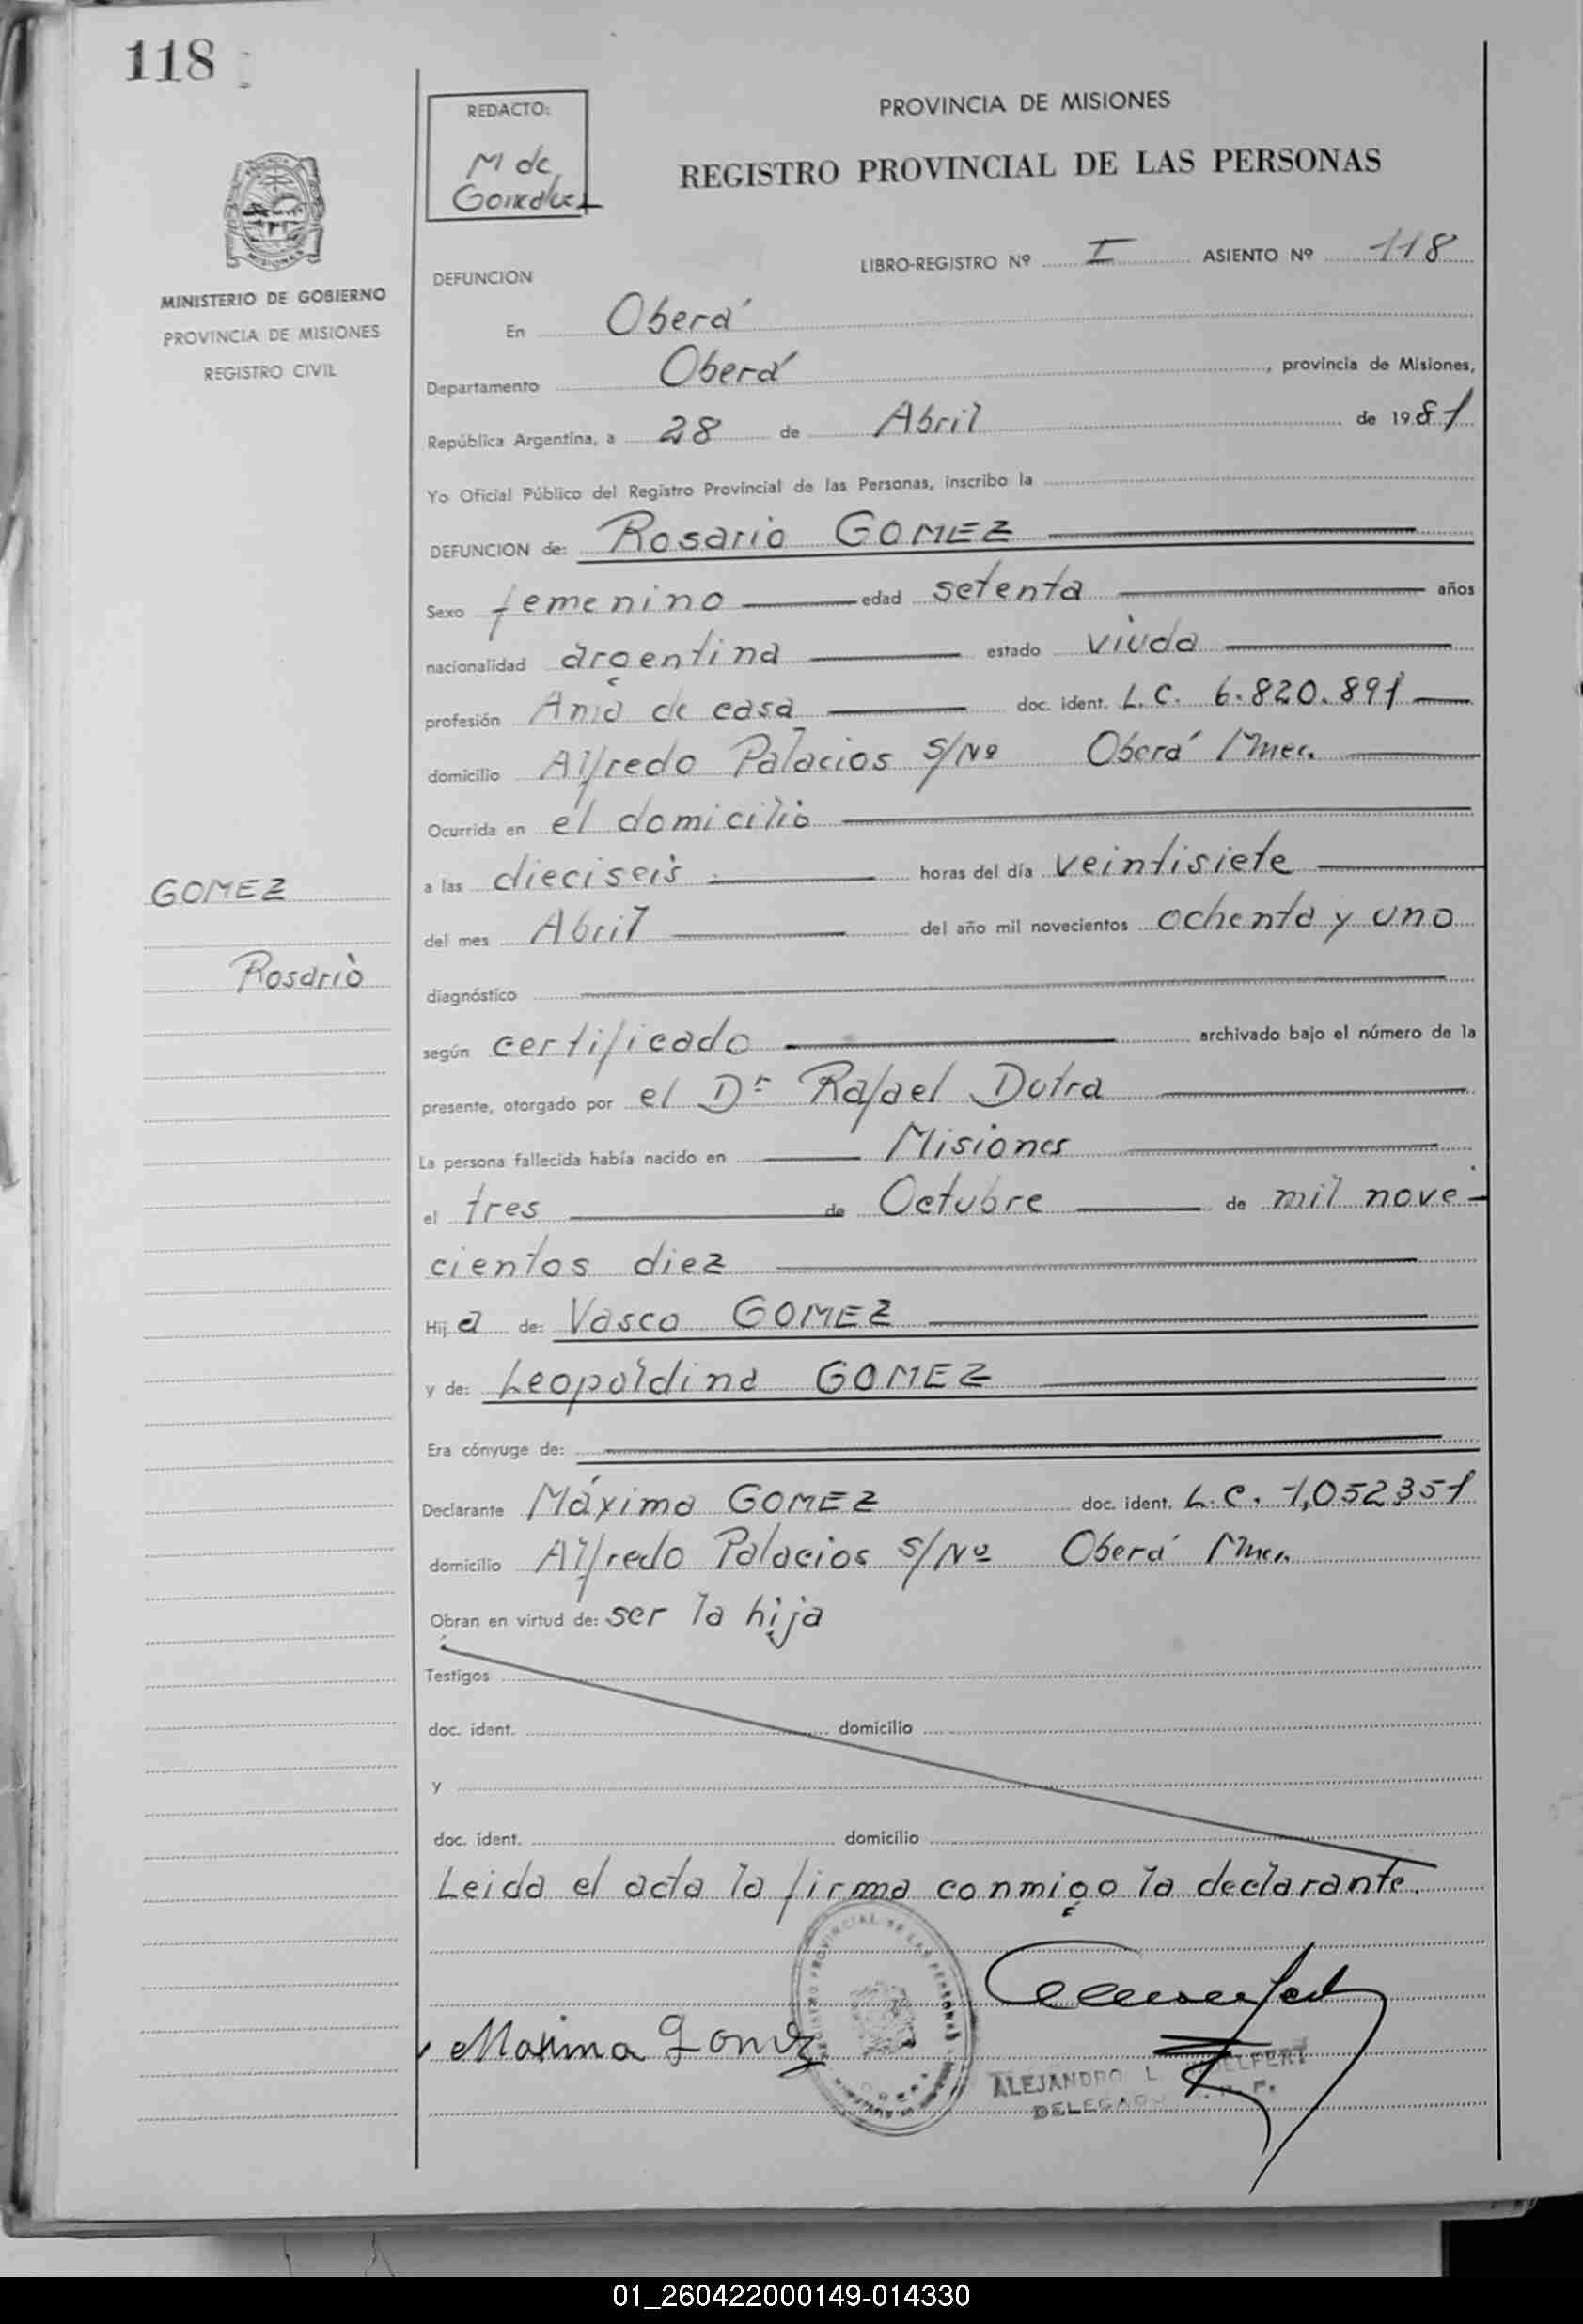 118
REDACTO:
M de
Gonzalez
PROVINCIA DE MISIONES
REGISTRO PROVINCIAL DE LAS PERSONAS
MISIONES
MINISTERIO DE GOBIERNO
PROVINCIA DE MISIONES
REGISTRO CIVIL
LIBRO-REGISTRO Nº I ASIENTO Nº 118
DEFUNCION
En Oberá
Departamento Oberá, provincia de Misiones,
República Argentina, a 28 de Abril de 1981
Yo Oficial Público del Registro Provincial de las Personas, inscribo la
DEFUNCION de: Rosario GOMEZ
Sexo femenino edad setenta años
nacionalidad argentina estado viuda
profesión Ama de casa doc. ident. L.C. 6.820.891
domicilio Alfredo Palacios S/Nº Oberá Mnes.
Ocurrida en el domicilio
a las dieciseis horas del día veintisiete
del mes Abril del año mil novecientos ochenta y uno
GOMEZ
Rosario
diagnóstico
según certificado archivado bajo el número de la
presente, otorgado por el Dr Rafael Dutra
La persona fallecida había nacido en Misiones
el tres de Octubre de mil nove-
cientos diez
Hija de: Vasco GOMEZ
y de: Leopoldina GOMEZ
Era cónyuge de:
Declarante Máxima GOMEZ doc. ident. L.C. 1,052351
domicilio Alfredo Palacios S/Nº Oberá Mnes.
Obran en virtud de: ser la hija
Testigos
doc. ident. domicilio
y
doc. ident. domicilio
Leida el acta la firma conmigo la declarante.
PROVINCIAL DE LAS PERSONAS
Maxima Gomez
ALEJANDRO L.
DELEGADO
01_260422000149-014330